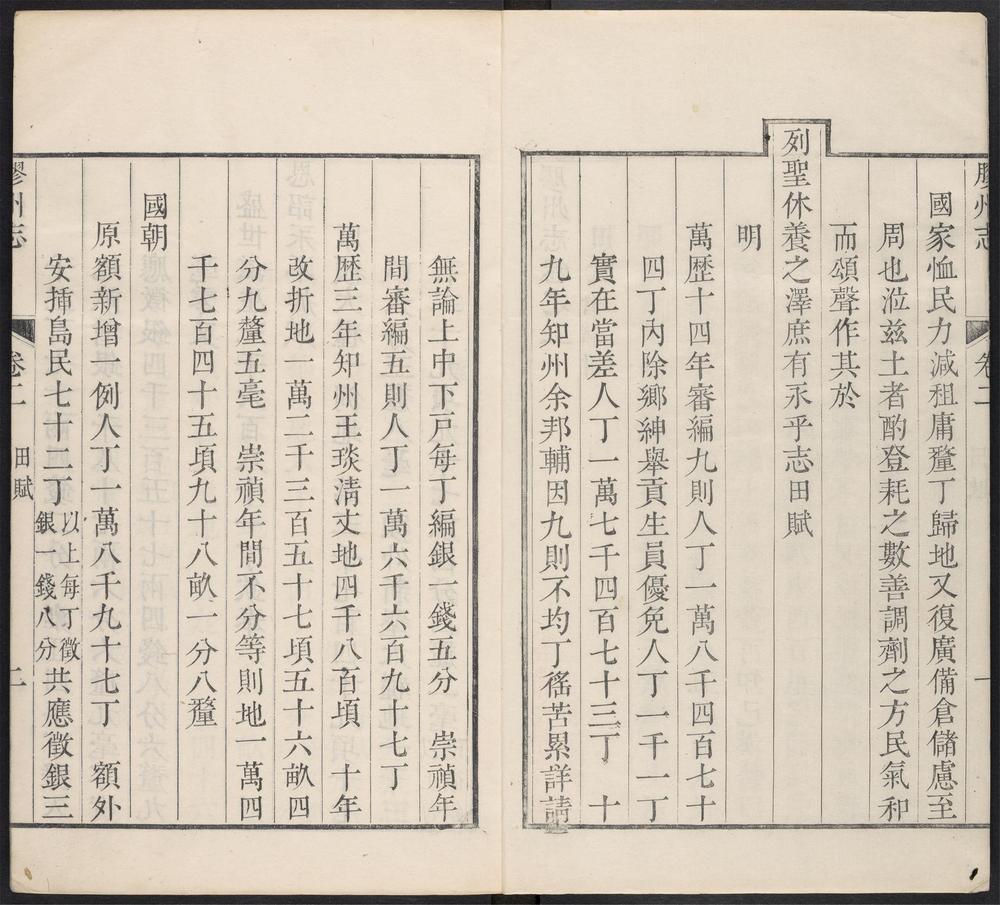 膠州志 卷二 一
國家恤民力減租庸釐丁歸地又復廣備倉儲慮至
周也涖兹土者酌登耗之數善調劑之方民氣和
而頌聲作其於
列聖休養之澤庶有永乎志田賦
明
萬歷十四年審編九則人丁一萬八千四百七十
四丁內除鄉紳舉貢生員優免人丁一千一丁
實在當差人丁一萬七千四百七十三丁 十
九年知州余邦輔因九則不均丁徭苦累詳請
無論上中下戸每丁編銀一錢五分 崇禎年
間審編五則人丁一萬六千六百九十七丁
萬歷三年知州王琰淸丈地四千八百頃 十年
改折地一萬二千三百五十七頃五十六畝四
分九釐五毫 崇禎年間不分等則地一萬四
千七百四十五頃九十八畝一分八釐
國朝
原額新增一例人丁一萬八千九十七丁 額外
安揷島民七十二丁 以上每丁徵
銀一錢八分 共應徵銀三
膠州志 卷二 田賦 二